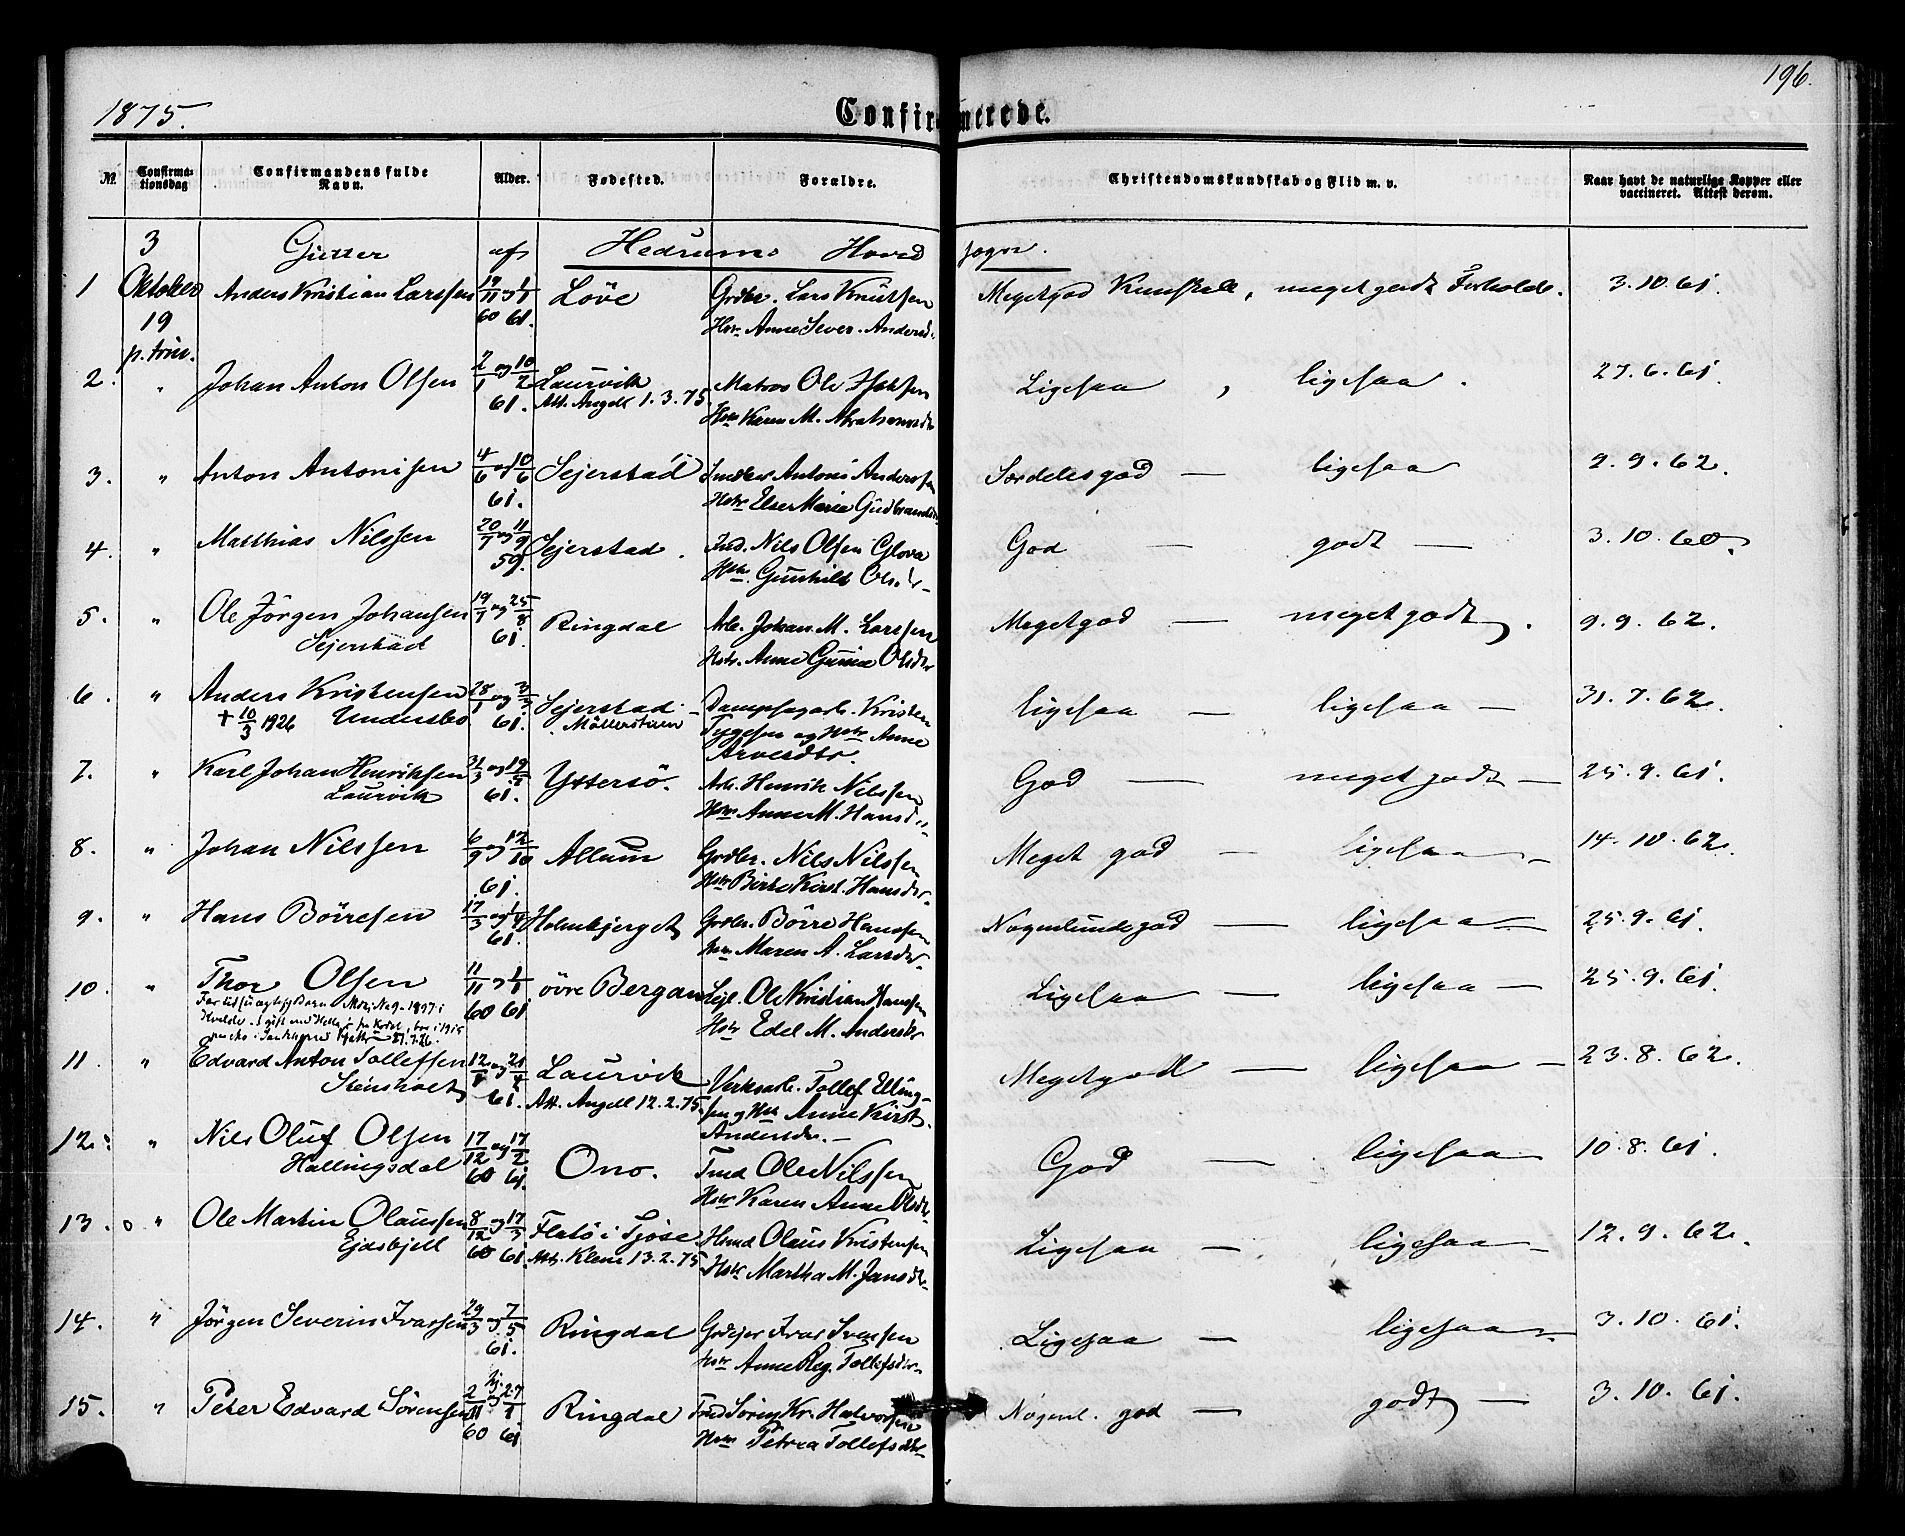 196.
1875.
Confirmerede.
No. Confirmationsdag Confirmandens fulde Navn. Alder. Fødested. Forældre. Christendomskundskab og Flid m. v. Naar havt de naturlige Kopper eller vaccineret. Attest derom.
3 Gutter af Hedrums Hoved sogn.
1 Oktober Anders Kristian Larssen 19/11 og 1/1 Löve Grdbr. Lars Knutsen Meget god Kundskab, meget godt Forhold. 3.10.61.
19 60 61. Hstr. Anne Sever. Andersd.
p. trin.
2. " Johan Anton Olsen 2/1 og 10/2 Laurvik Matros Ole Ligesaa, ligesaa. 27.6.61.
61. Att. Angell 1.3.75. Hstr Karen M. Abrahamsdr
3. " Anton Antonisen 4/6 og 10/6 Sejerstad Antoni Anderssen Særdeles god — ligesaa 9.9.62.
61. Hstr Else Marie Gudbrandsdr
4. " Matthias Nilssen 20/7 og 11/9 Sejerstad. Ind. Nils Olsen Glova God — godt — 3.10.60.
59. Hstr. Gunhild Olsdr
5. " Ole Jörgen Johansen 19/7 og 25/8 Ringdal Arb. Johan M. Larssen Meget god — meget godt. 9.9.62.
Sejerstad 61. Hstr. Anne Olsdtr
6. " Anders Kristensen 28/1 og 3/3 Sejerstad — Dampsagarb. Kristen ligesaa — ligesaa — 31.7.62.
+ 10/3 1926 Undersbo 61. Möllerstuen Tygesen og Hstr Anne
Arvesdtr.
7. " Karl Johan Henriksen 31/3 og 19/5 Yttersö. Arb. Henrik Nilssen God — meget godt — 25.9.61.
Laurvik 61. Hstr Anne M. Hansdr
8. " Johan Nilssen 6/9 og 12/10 Allum Grdbr. Nils Nilssen Meget god — ligesaa — 14.10.62.
61. Hstr Birte Kirst. Hansdr
9. " Hans Börresen 17/3 og 1/4 Holmbjerget Grdbr. Börre Hanssen Nogenlunde god — ligesaa — 25.9.61.
61. Hstr Maren A. Larsdr
10. " Thor Olsen 11/11 og 1/1 övre Bergan Ole Kristian Hanssen Ligesaa — ligesaa — 25.9.61.
60 61 Hstr Edel M. Andersdr
11. " Edvard Anton Tollefsen 12/1 og 21/4 Laurvik Verksarb. Tollef Elling- Meget god — ligesaa — 23.8.62.
Stensholt 61. Att. Angell 12.2.75. sen og Hstr Anne Kirst.
Andersdr. —
12. " Nils Oluf Olsen 17/12 og 17/2 Ono. Ole Nilssen God — ligesaa — 10.8.61.
Hallingsdal 60 61. Hstr Karen Anne Olsdr
13. o " Ole Martin Olaussen 8/12 og 17/3 i Tjöse Hmd Olaus Kristensen Ligesaa — ligesaa — 12.9.62.
60 61. Att. 13.2.75 Hstr Martha M. Jansdr
14. " Jörgen Severin Ivarsen 29/3 og 7/5 Ringdal Grdejer Ivar Ligesaa — ligesaa — 3.10.61.
61. Hstr Anne Reg. Tollefsdr
15. " Peter Edvard Sörensen 2/11 og 27/1 Ringdal Sören Kr. Halvorsen Nogenl. god — godt — 3.10.61.
60 61 Hstr Petrea Tollefsdtr